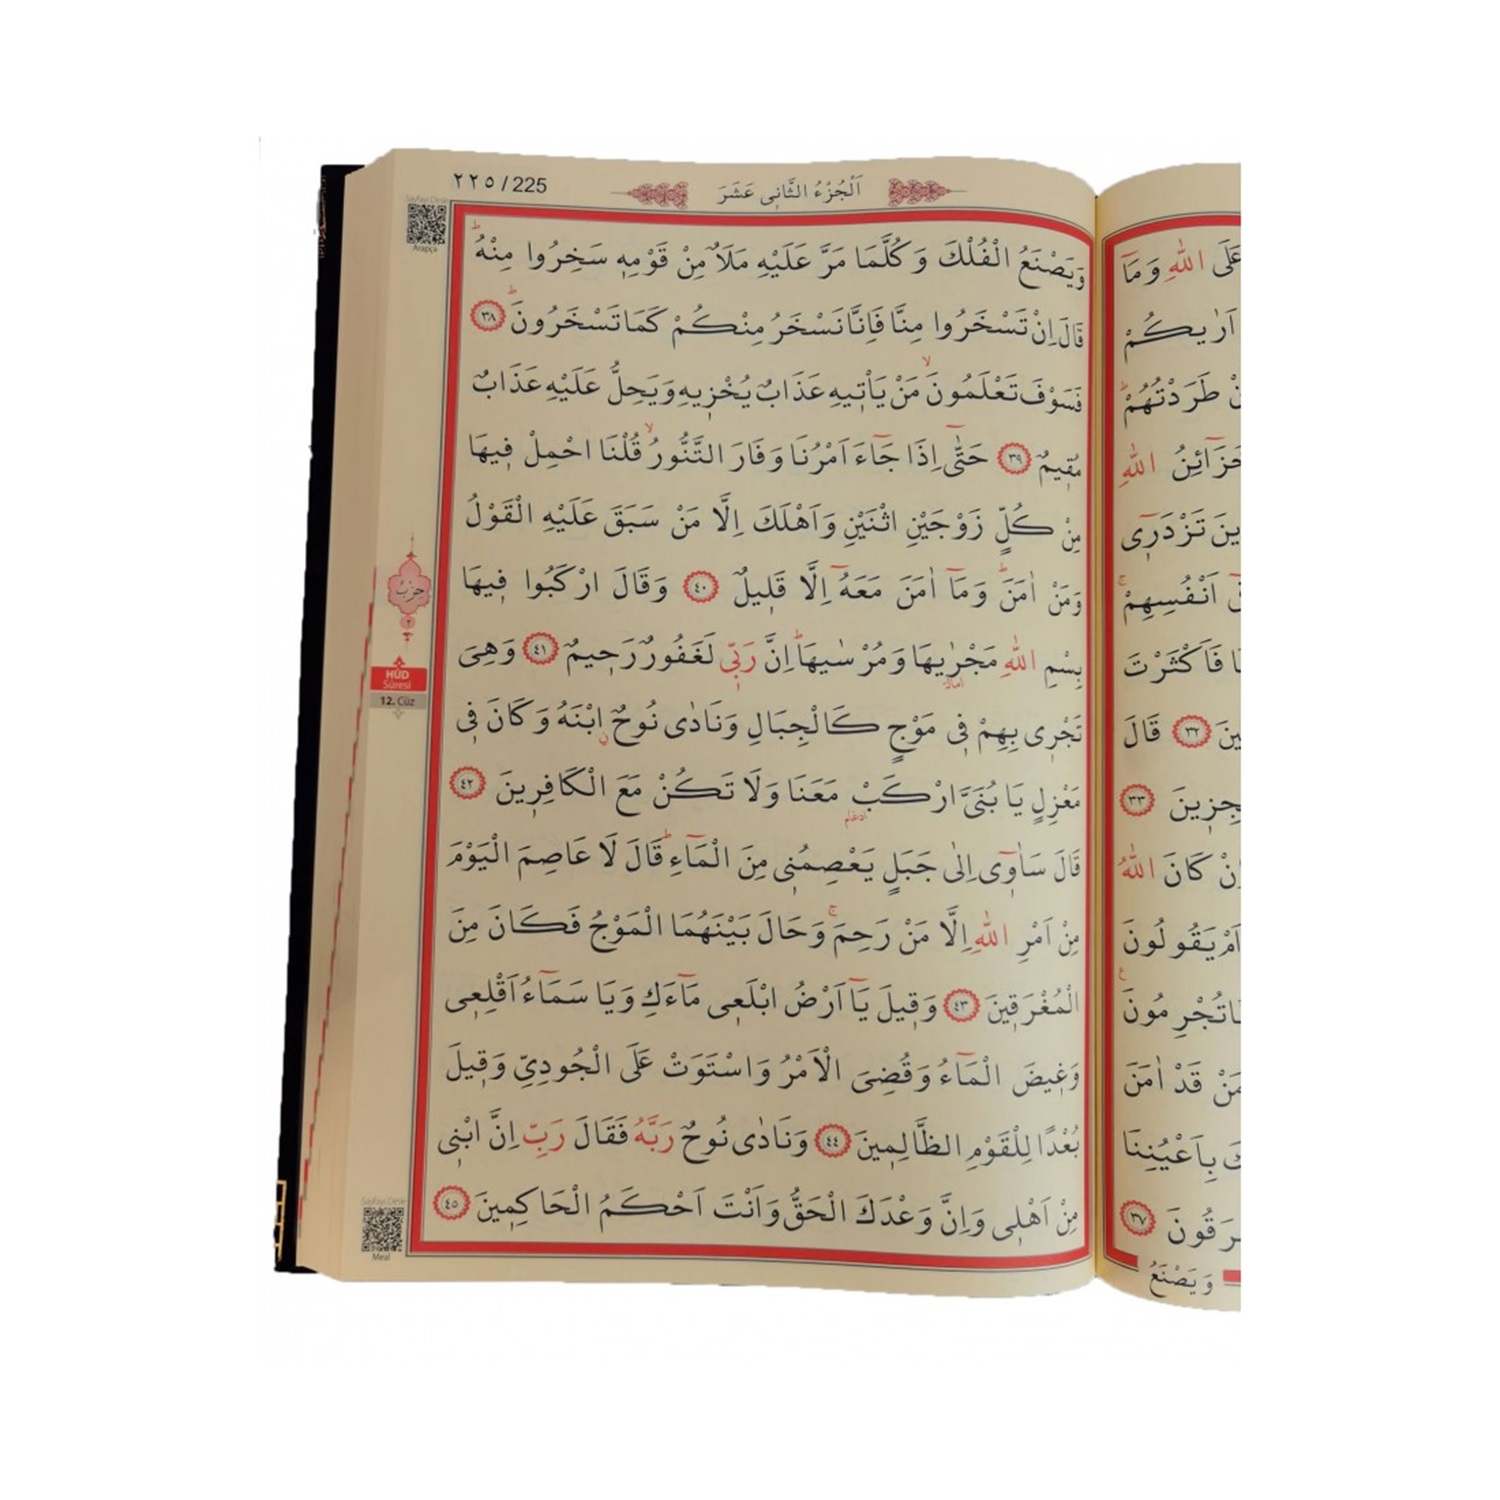 ٢٢٥ / 225
اَلْجُزْءُ الثَّانٖى عَشَرَ
Sayfayı Dinle
Arapça
وَيَصْنَعُ الْفُلْكَ وَكُلَّمَا مَرَّ عَلَيْهِ مَلَاٌ مِنْ قَوْمِهٖ سَخِرُوا مِنْهُؕ
قَالَ اِنْ تَسْخَرُوا مِنَّا فَاِنَّا نَسْخَرُ مِنْكُمْ كَمَا تَسْخَرُونَؕ ٣٨
فَسَوْفَ تَعْلَمُونَۙ مَنْ يَاْتٖيهِ عَذَابٌ يُخْزٖيهِ وَيَحِلُّ عَلَيْهِ عَذَابٌ
مُقٖيمٌ ٣٩ حَتّٰٓى اِذَا جَٓاءَ اَمْرُنَا وَفَارَ التَّنُّورُۙ قُلْنَا احْمِلْ فٖيهَا
مِنْ كُلٍّ زَوْجَيْنِ اثْنَيْنِ وَاَهْلَكَ اِلَّا مَنْ سَبَقَ عَلَيْهِ الْقَوْلُ
وَمَنْ اٰمَنَؕ وَمَٓا اٰمَنَ مَعَهُٓ اِلَّا قَلٖيلٌ ٤٠ وَقَالَ ارْكَبُوا فٖيهَا
بِسْمِ اللّٰهِ مَجْرٰۭيهَا وَمُرْسٰيهَاؕ اِنَّ رَبّٖى لَغَفُورٌ رَحٖيمٌ ٤١ وَهِىَ
اماله
تَجْرٖى بِهِمْ فٖى مَوْجٍ كَالْجِبَالِ وَنَادٰى نُوحٌ ۨابْنَهُ وَكَانَ فٖى
مَعْزِلٍ يَا بُنَىَّ ارْكَبْ مَعَنَا وَلَا تَكُنْ مَعَ الْكَافِرٖينَ ٤٢
ادغام
قَالَ سَاٰوٖٓى اِلٰى جَبَلٍ يَعْصِمُنٖى مِنَ الْمَٓاءِؕ قَالَ لَا عَاصِمَ الْيَوْمَ
مِنْ اَمْرِ اللّٰهِ اِلَّا مَنْ رَحِمَۚ وَحَالَ بَيْنَهُمَا الْمَوْجُ فَكَانَ مِنَ
الْمُغْرَقٖينَ ٤٣ وَقٖيلَ يَٓا اَرْضُ ابْلَعٖى مَٓاءَكِ وَيَا سَمَٓاءُ اَقْلِعٖى
وَغٖيضَ الْمَٓاءُ وَقُضِىَ الْاَمْرُ وَاسْتَوَتْ عَلَى الْجُودِىِّ وَقٖيلَ
بُعْدًا لِلْقَوْمِ الظَّالِمٖينَ ٤٤ وَنَادٰى نُوحٌ رَبَّهُ فَقَالَ رَبِّ اِنَّ ابْنٖى
مِنْ اَهْلٖى وَاِنَّ وَعْدَكَ الْحَقُّ وَاَنْتَ اَحْكَمُ الْحَاكِمٖينَ ٤٥
حزب
٢
HÛD
Sûresi
12. Cüz
Sayfayı Dinle
Meal
عَلَى اللّٰهِ وَمَٓا
اَرٰيكُمْ
طَرَدْتُهُمْؕ
خَزَٓائِنُ اللّٰهِ
تَزْدَرٖٓى
اَنْفُسِهِمْۚ
فَاَكْثَرْتَ
٣٢ قَالَ
٣٣
كَانَ اللّٰهُ
اَمْ يَقُولُونَ
تُجْرِمُونَ
قَدْ اٰمَنَ
بِاَعْيُنِنَا
٣٧
وَيَصْنَعُ